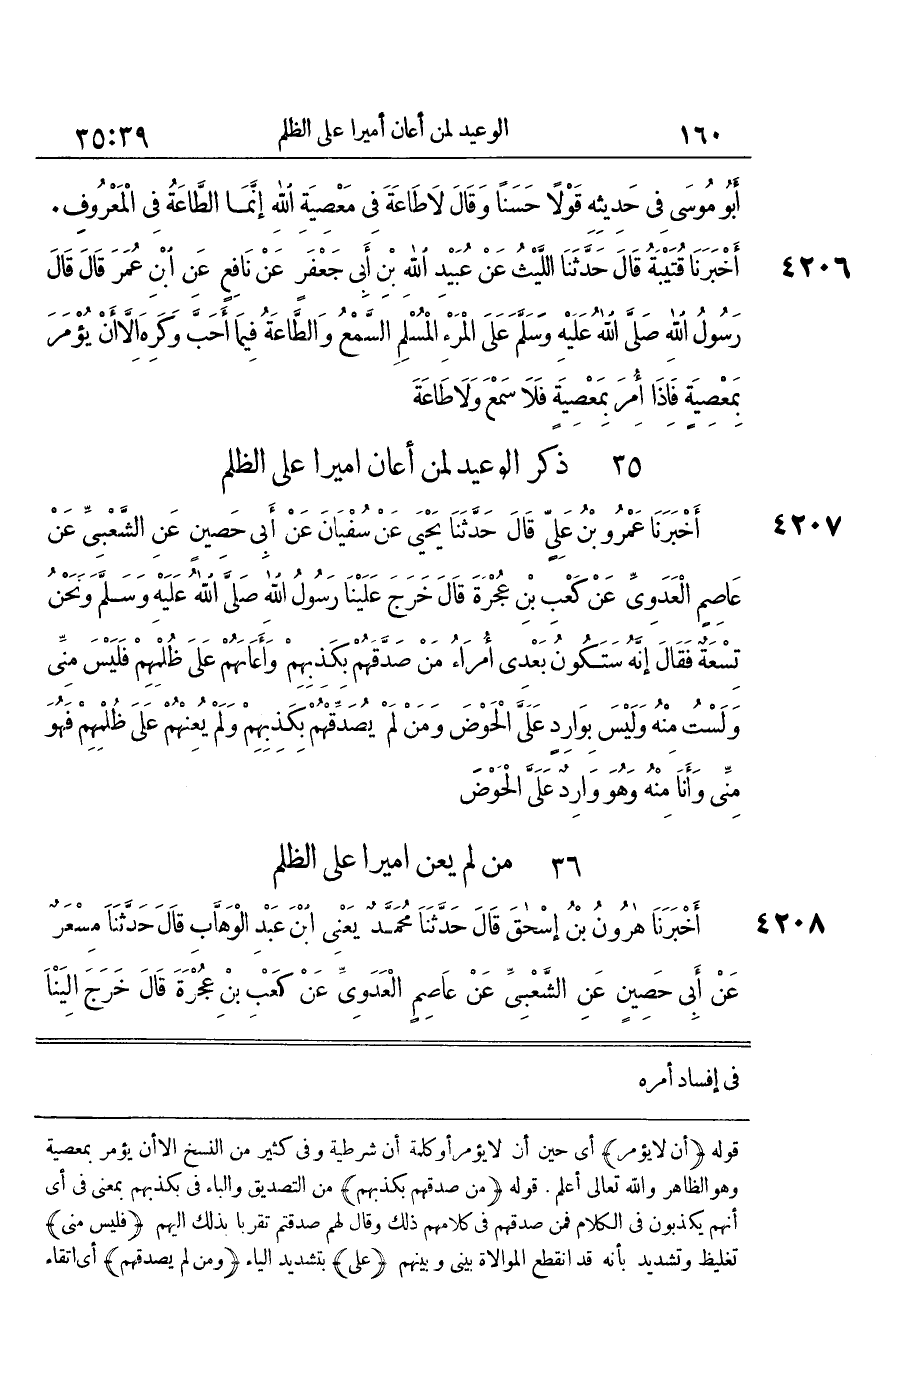 ١٦٠ الوعيد لمن أعان أميرا على الظلم ٣٥:٣٩
أَبُو مُوسَى فِى حَدِيثِهِ قَوْلًا حَسَنًا وَقَالَ لَاطَاعَةَ فِى مَعْصِيَةِ اللهِ إِنَّمَـا الطَّاعَةُ فِى الْمَعْرُوفِ.
٤٢٠٦ أَخْبَرَنَا قُتَيْبَةُ قَالَ حَدَّثَنَا اللَّيْثُ عَنْ عُبَيْدِ اللهِ بْنِ أَبِى جَعْفَرٍ عَنْ نَافِعٍ عَنِ ابْنِ عُمَرَ قَالَ قَالَ
رَسُولُ اللهِ صَلَّى اللهُ عَلَيْهِ وَسَلَّمَ عَلَى الْمَرْءِ الْمُسْلِمِ السَّمْعُ وَالطَّاعَةُ فِيمَا أَحَبَّ وَكَرِهَ إِلَّا أَنْ يُؤْمَرَ
بِمَعْصِيَةٍ فَإِذَا أُمِرَ بِمَعْصِيَةٍ فَلَا سَمْعَ وَلَا طَاعَةَ
٣٥ ذكر الوعيد لمن أعان اميرا على الظلم
٤٢٠٧ أَخْبَرَنَا عَمْرُو بْنُ عَلِيٍّ قَالَ حَدَّثَنَا يَحْيَى عَنْ سُفْيَانَ عَنْ أَبِى حَصِينٍ عَنِ الشَّعْبِىِّ عَنْ
عَاصِمٍ الْعَدَوِىِّ عَنْ كَعْبِ بْنِ عُجْرَةَ قَالَ خَرَجَ عَلَيْنَا رَسُولُ اللهِ صَلَّى اللهُ عَلَيْهِ وَسَـلَّمَ وَنَحْنُ
تِسْعَةٌ فَقَالَ إِنَّهُ سَتَكُونُ بَعْدِى أُمَرَاءُ مَنْ صَدَّقَهُمْ بِكَذِبِهِمْ وَأَعَانَهُمْ عَلَى ظُلْمِهِمْ فَلَيْسَ مِنِّى
وَلَسْتُ مِنْهُ وَلَيْسَ بِوَارِدٍ عَلَىَّ الْحَوْضَ وَمَنْ لَمْ يُصَدِّقْهُمْ بِكَذِبِهِمْ وَلَمْ يُعِنْهُمْ عَلَى ظُلْمِهِمْ فَهُوَ
مِنِّى وَأَنَا مِنْهُ وَهُوَ وَارِدٌ عَلَىَّ الْحَوْضَ
٣٦ من لم يعن اميرا على الظلم
٤٢٠٨ أَخْبَرَنَا هٰرُونُ بْنُ إِسْحٰقَ قَالَ حَدَّثَنَا مُحَمَّـدٌ يَعْنِى ابْنَ عَبْدِ الْوَهَّابِ قَالَ حَدَّثَنَا مِسْعَرٌ
عَنْ أَبِى حَصِينٍ عَنِ الشَّعْبِىِّ عَنْ عَاصِمٍ الْعَدَوِىِّ عَنْ كَعْبِ بْنِ عُجْرَةَ قَالَ خَرَجَ إِلَيْنَا
فى إفساد أمره
قوله ﴿أن لايؤمر﴾ أى حين أن لايؤمر أوكلمة أن شرطية وفى كثير من النسخ الاأن يؤمر بمعصية
وهو الظاهر والله تعالى أعلم . قوله ﴿من صدقهم بكذبهم﴾ من التصديق والباء فى بكذبهم بمعنى فى أى
أنهم يكذبون فى الكلام فمن صدقهم فى كلامهم ذلك وقال لهم صدقتم تقربا بذلك اليهم ﴿فليس منى﴾
تغليظ وتشديد بأنه قد انقطع الموالاة بينى وبينهم ﴿على﴾ بتشديد الياء ﴿ومن لم يصدقهم﴾ أى اتقاء